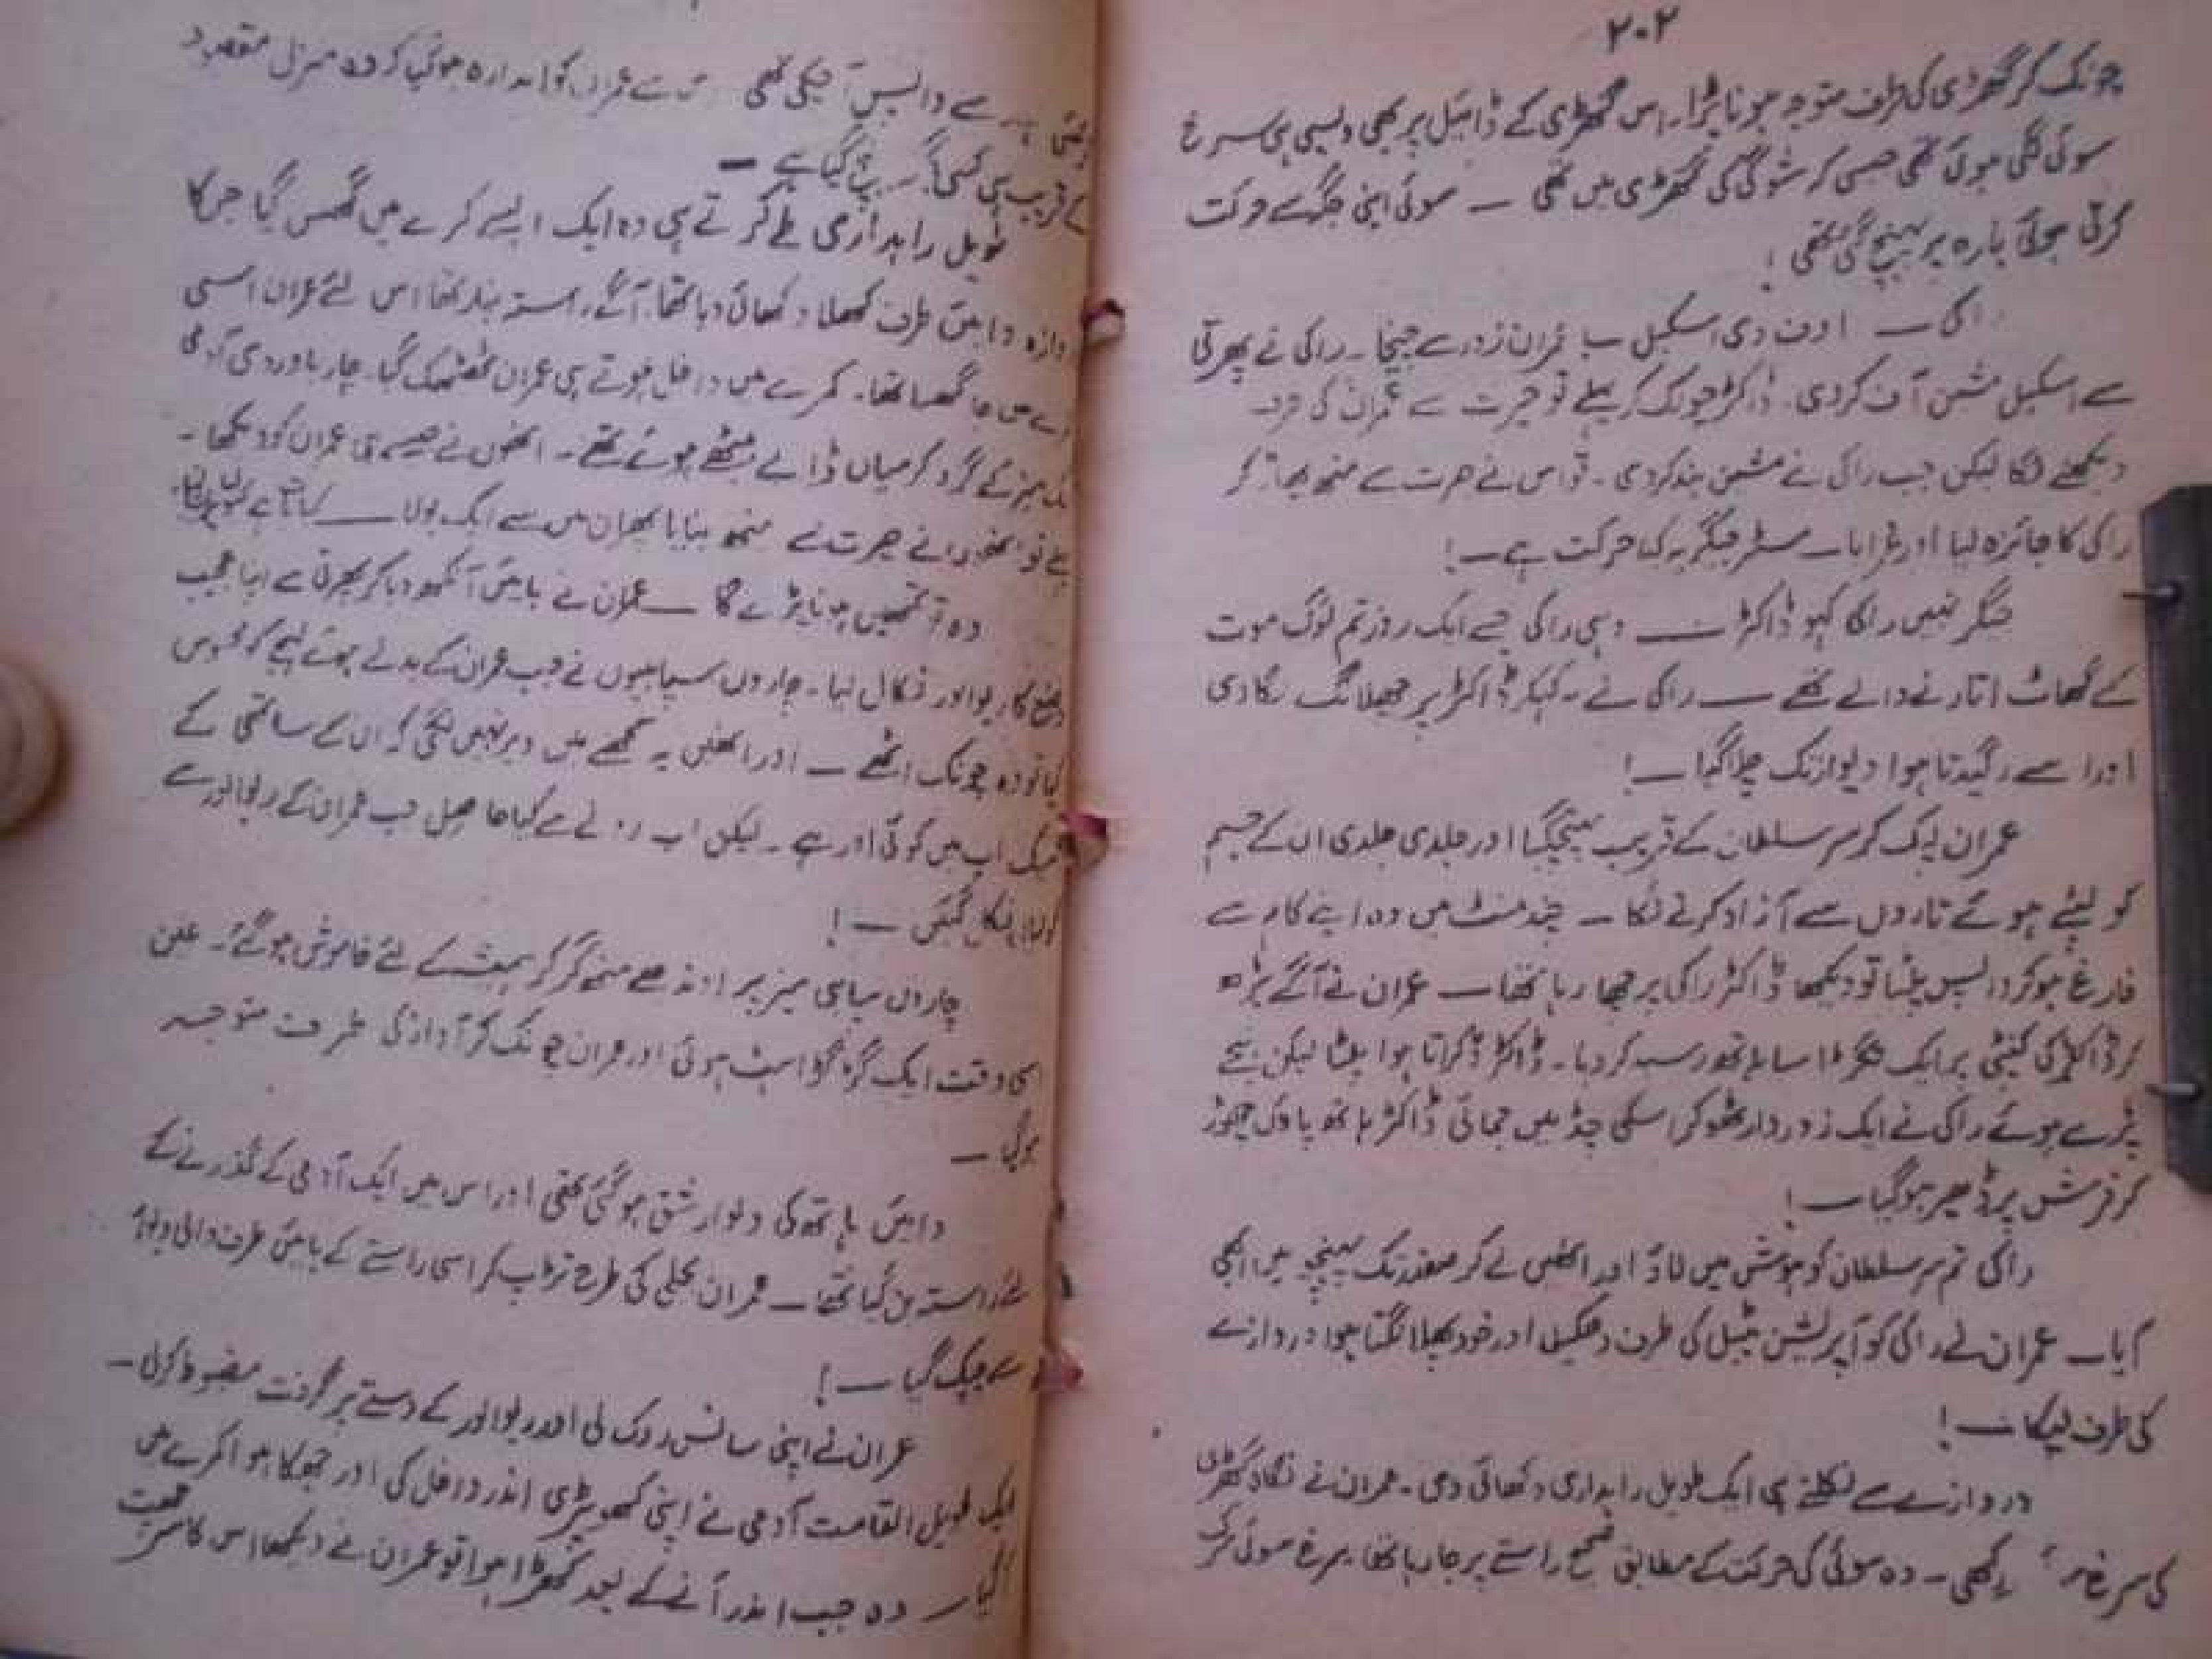 ۲۰۲
چونک کر گھڑی کی طرف متوجہ ہونا پڑا۔ اس گھڑی کے ڈائیل پر بھی ویسی ہی سرخ
سوئی لگی ہوئی تھی جیسی کر شوگی کی گھڑی میں تھی — سوئی اپنی جگہ سے حرکت
کرتی ہوئی بارہ پر پہنچ گئی تھی !
راکی — اوف دی اسکیل — عمران زور سے چیخا۔ راکی نے پھرتی
سے اسکیل مشن آف کر دی۔ ڈاکٹر چونک کر پہلے تو حیرت سے عمران کی طرف
دیکھنے لگا لیکن جب راکی نے مشین بند کر دی۔ تو اس نے حیرت سے منھ پھاڑ کر
راکی کا جائزہ لیا اور غرایا — مسٹر جیگر یہ کیا حرکت ہے — !
جیگر نہیں راکی کہو ڈاکٹر — وہی راکی جسے ایک روز تم لوگ موت
کے گھاٹ اتارنے والے تھے — راکی نے یہ کہکر ڈاکٹر پر چھلانگ لگا دی
اور اسے رگیدتا ہوا دیوار تک چلا گیا — !
عمران لپک کر سر سلطان کے قریب پہنچ گیا اور جلدی جلدی ان کے جسم
کو لپٹے ہوئے تاروں سے آزاد کرنے لگا — چند منٹ میں وہ اپنے کام سے
فارغ ہو کر واپس پلٹا تو دیکھا ڈاکٹر راکی پر چھا رہا تھا — عمران نے آگے بڑھ
کر ڈاکٹر کی کنپٹی پر ایک تگڑا سا ہاتھ رسید کر دیا۔ ڈاکٹر ڈکراتا ہوا پلٹا لیکن نیچے
پڑے ہوئے راکی نے ایک زور دار ٹھوکر اسکی چڈ میں جمائی ڈاکٹر ہاتھ پاؤں چھوڑ
کر فرش پر ڈھیر ہو گیا — !
راکی تم سر سلطان کو ہوش میں لاؤ اور انھیں لے کر صفدر تک پہنچو میں ابھی
آیا — عمران نے راکی کو آپریشن ٹیبل کی طرف دھکیلا اور خود پھلانگتا ہوا دروازے
کی طرف لپکا — !
دروازے سے نکلتے ہی ایک طویل راہداری دکھائی دی۔ عمران نے نگاہ گھڑی
کی سرخ رکھی — وہ سوئی کی حرکت کے مطابق صحیح راستے پر جا رہا تھا۔ سرخ سوئی
سے واپس آ چکی تھی سے عمران کو اندازہ ہو گیا کہ وہ منزل مقصود
کے قریب ہی کسی جگہ پہنچ گیا ہے —
طویل راہداری طے کرتے ہی وہ ایک ایسے کمرے میں گھس گیا جس کا
دروازہ دائیں طرف کھلا دکھائی دیا تھا۔ آگے راستہ بند تھا اس لئے عمران اسی
میں جا گھسا تھا۔ کمرے میں داخل ہوتے ہی عمران ٹھٹھک گیا۔ چار باوردی آدمی
ایک میز کے گرد کرسیاں ڈالے بیٹھے ہوئے تھے۔ انھوں نے جیسے ہی عمران کو دیکھا۔
پہلے تو انھوں نے حیرت سے منھ بنایا پھر ان میں سے ایک بولا —
وہ تو تمھیں ہونا پڑے گا — عمران نے بائیں آنکھ دبا کر پھرتی سے اپنا عجیب
وضع کا ریوالور نکال لیا۔ چاروں سپاہیوں نے جب عمران کے بدلے ہوئے لہجے کو محسوس
کیا تو وہ چونک اٹھے — اور انھیں یہ سمجھنے میں دیر نہیں لگی کہ ان کے ساتھی کے
میک اپ میں کوئی اور ہے۔ لیکن اب رونے سے کیا حاصل جب عمران کے ریوالور سے
نکل گئیں — !
چاروں سپاہی میز پر اوندھے منھ گر کر ہمیشہ کے لئے خاموش ہو گئے۔ عین
اسی وقت ایک گڑگڑاہٹ ہوئی اور عمران چونک کر آواز کی طرف متوجہ
ہو گیا —
دائیں ہاتھ کی دیوار شق ہو گئی تھی اور اس میں ایک آدمی کے گذرنے کے
لئے راستہ بن گیا تھا — عمران بجلی کی طرح تڑپ کر اسی راستے کے بائیں طرف والی دیوار
سے چپک گیا — !
عمران نے اپنی سانس روک لی اور ریوالور کے دستے پر گرفت مضبوط کر لی —
ایک طویل القامت آدمی نے اپنی کھوپڑی اندر داخل کی اور جھکا ہوا کمرے میں
آ گیا — وہ جب اندر آنے کے بعد کھڑا ہوا تو عمران نے دیکھا اس کا سر